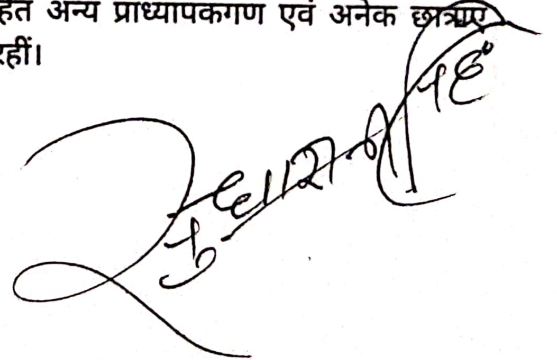 हित अन्य प्राध्यापकगण एवं अनेक छात्राएं
रहीं।
सुधा रानी सिंह